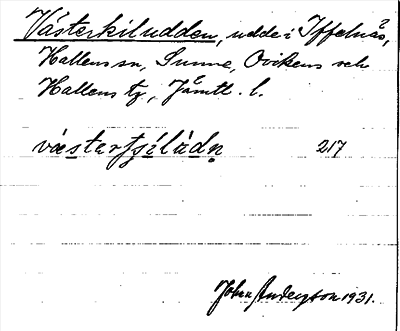 Västerkiludden, udde i Iffelnäs,
Hallens sn, Sunne, Ovikens och
Hallens tg, Jämtl. l.
västerţşiludn 217
John Andersson 1931.